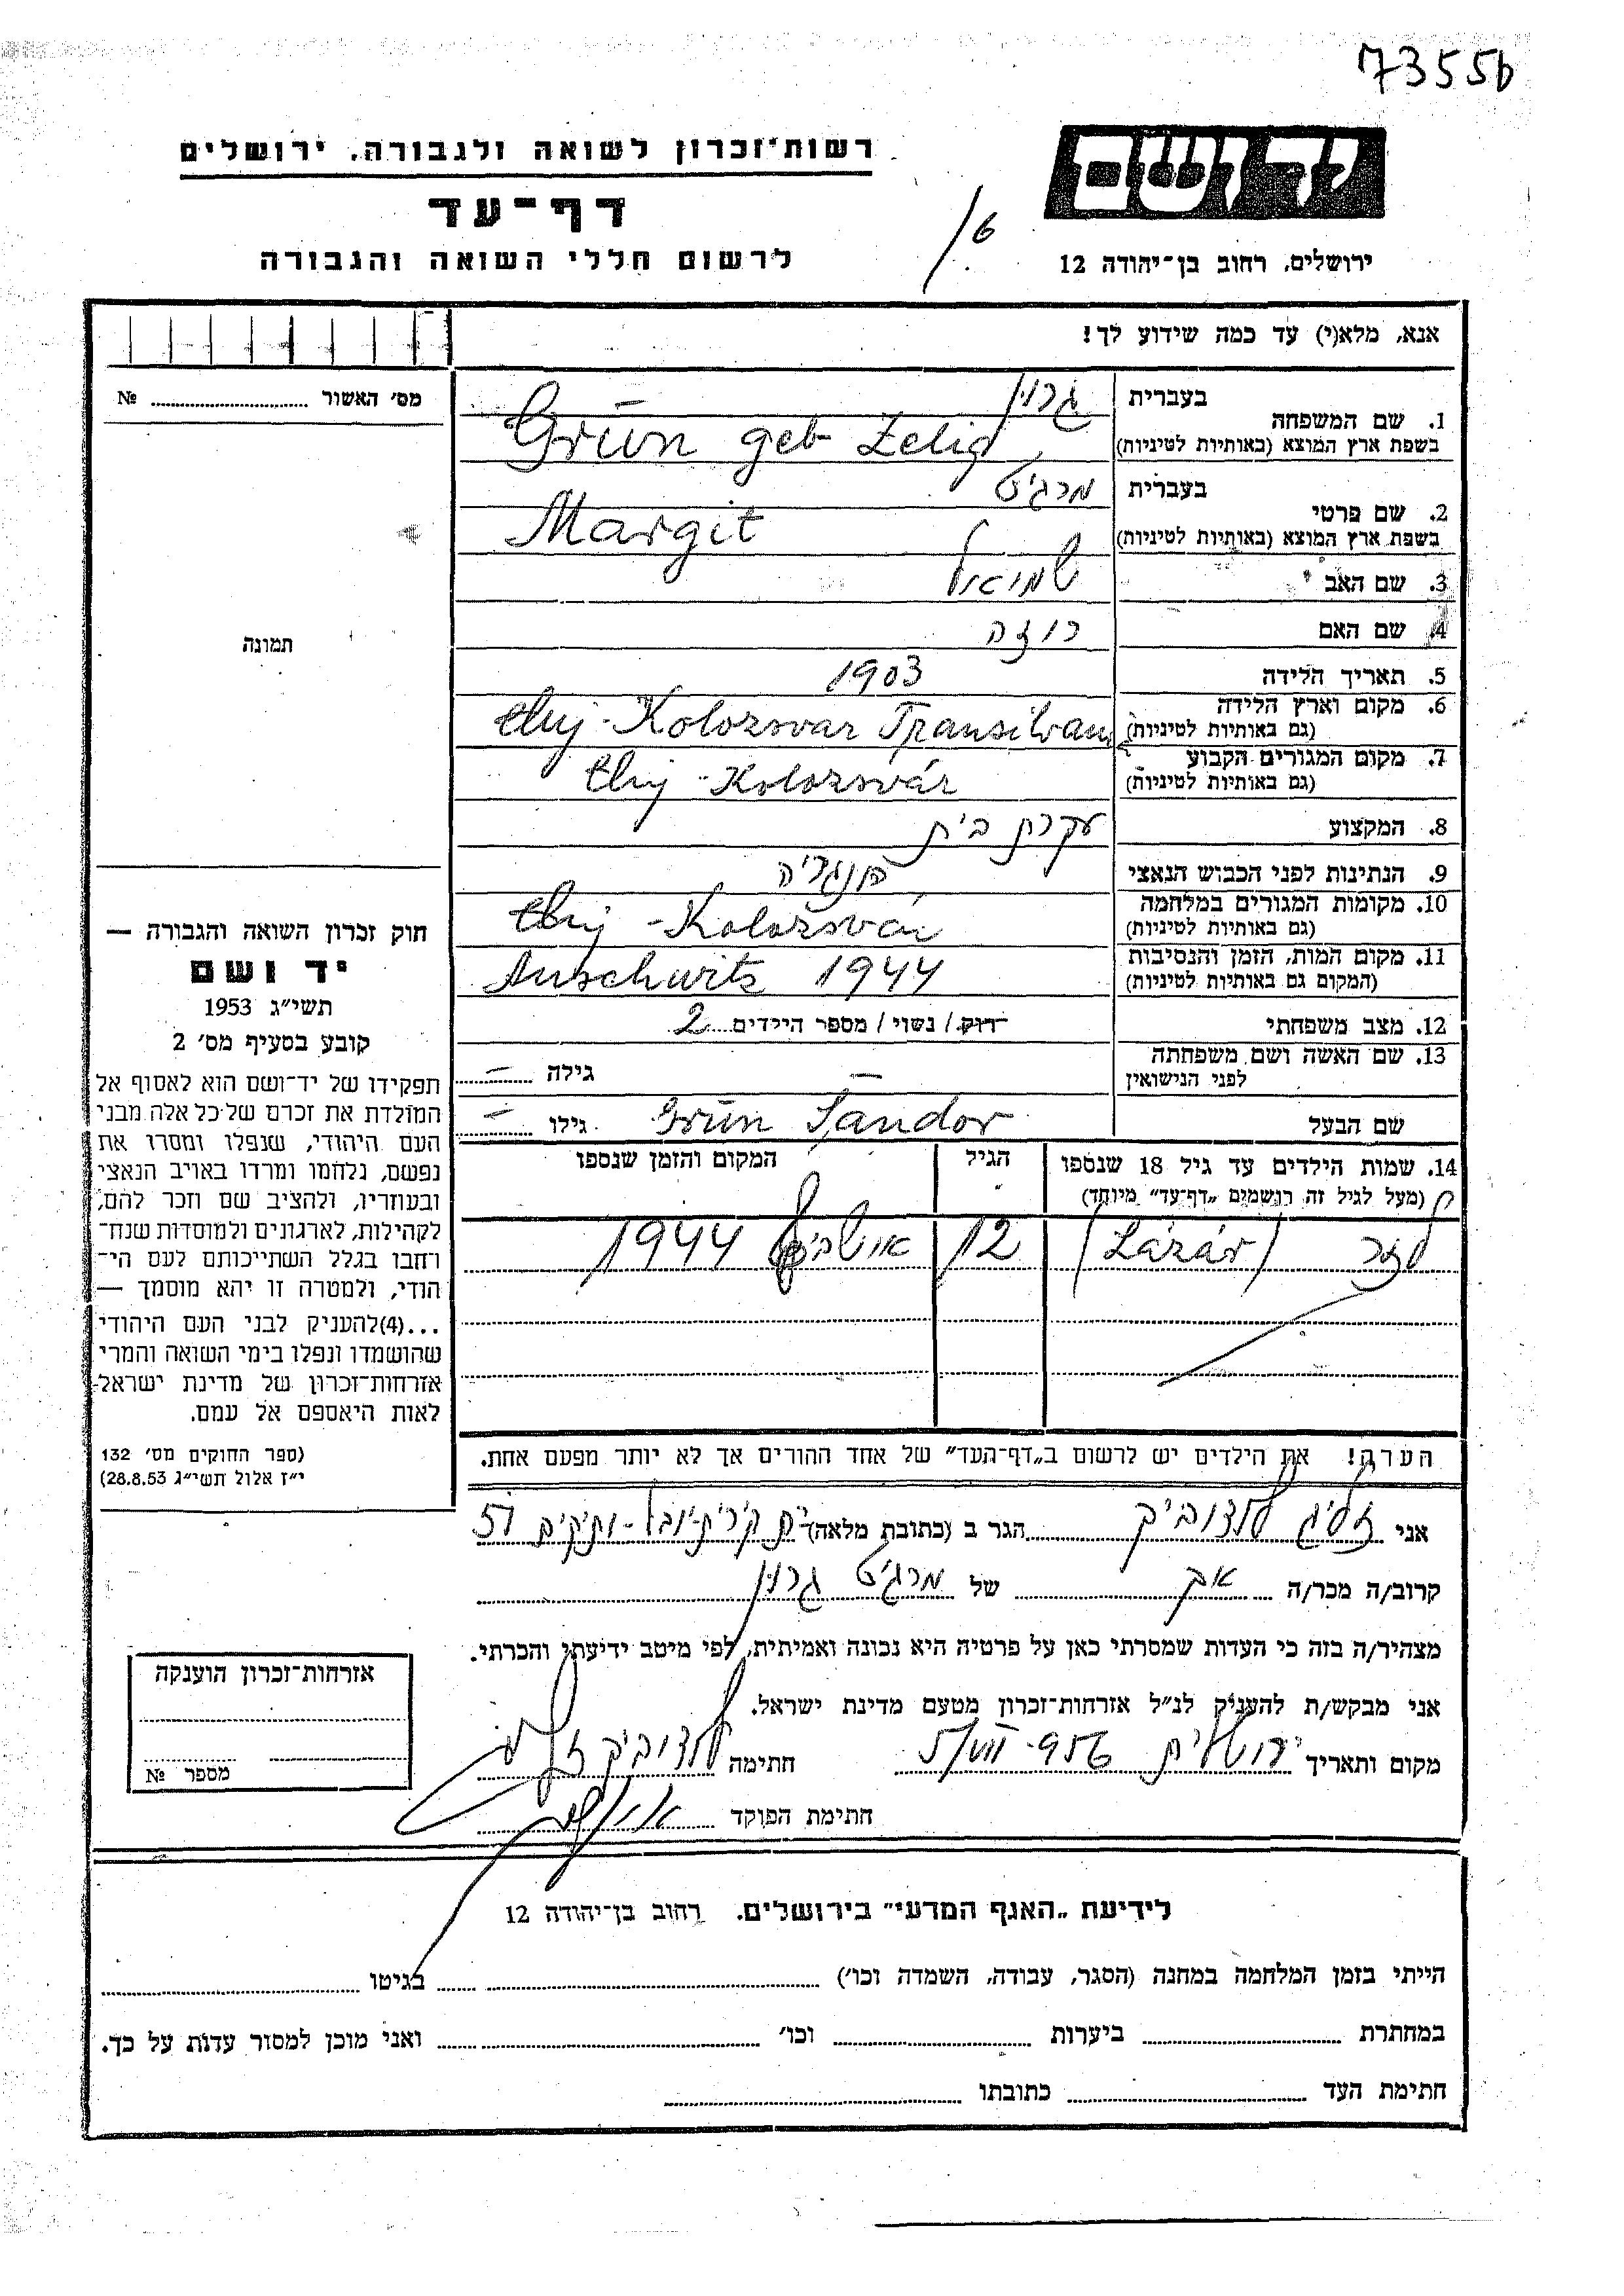 73556
רשות־זכרון לשואה ולגבורה, ירושלים
יד ושם
דף־עד
לרשום חללי השואה והגבורה
ירושלים, רחוב בן־יהודה 12
אנא, מלא(י) עד כמה שידוע לך!
מס׳ האשור № 
1. שם המשפחה
בעברית גרין
בשפת ארץ המוצא (באותיות לטיניות) Grün geb Zelig
2. שם פרטי
בעברית מרגיט
בשפת ארץ המוצא (באותיות לטיניות) Margit
3. שם האב שמואל
4. שם האם רוזה
תמונה
5. תאריך הלידה 1903
6. מקום וארץ הלידה
(גם באותיות לטיניות) Cluj-Kolozsvar Transilvan
7. מקום המגורים הקבוע
(גם באותיות לטיניות) Cluj-Kolozsvár
8. המקצוע עקרת בית
9. הנתינות לפני הכבוש הנאצי הונגריה
10. מקומות המגורים במלחמה
(גם באותיות לטיניות) Cluj-Kolozsvár
11. מקום המות, הזמן והנסיבות
(המקום גם באותיות לטיניות) Auschwitz 1944
12. מצב משפחתי רוק / נשוי / מספר הילדים 2
13. שם האשה ושם משפחתה
לפני הנישואין — גילה —
שם הבעל Grün Sandor גילו —
14. שמות הילדים עד גיל 18 שנספו
(מעל לגיל זה רושמים „דף־עד״ מיוחד)
הגיל
המקום והזמן שנספו
לזר (Lázár) 12 אושביץ 1944
הערה! את הילדים יש לרשום ב„דף־העד״ של אחד ההורים אך לא יותר מפעם אחת.
חוק זכרון השואה והגבורה —
יד ושם
תשי״ג 1953
קובע בסעיף מס׳ 2
תפקידו של יד־ושם הוא לאסוף אל
המולדת את זכרם של כל אלה מבני
העם היהודי, שנפלו ומסרו את
נפשם, נלחמו ומרדו באויב הנאצי
ובעוזריו, ולהציב שם וזכר להם,
לקהילות, לארגונים ולמוסדות שנח־
רחבו בגלל השתייכותם לעם הי־
הודי, ולמטרה זו יהא מוסמך —
...(4)להעניק לבני העם היהודי
שהושמדו ונפלו בימי השואה והמרי
אזרחות־זכרון של מדינת ישראל
לאות היאספם אל עמם.
(ספר החוקים מס׳ 132
י״ז אלול תשי״ג 28.8.53)
אני זליג לזרוביץ הגר ב (כתובת מלאה) קרית-יובל-ותיקים
קרוב/ה מכר/ה אח של מרגיט גרין
מצהיר/ה בזה כי העדות שמסרתי כאן על פרטיה היא נכונה ואמיתית, לפי מיטב ידיעתי והכרתי.
אני מבקש/ת להעניק לנ״ל אזרחות־זכרון מטעם מדינת ישראל.
מקום ותאריך ירושלים חתימה
חתימת הפוקד
אזרחות־זכרון הוענקה
מספר №
לידיעת „האגף המדעי״ בירושלים, רחוב בן־יהודה 12
הייתי בזמן המלחמה במחנה (הסגר, עבודה, השמדה וכו׳) בגיטו
במחתרת ביערות וכו׳ ואני מוכן למסור עדות על כך.
חתימת העד כתובתו